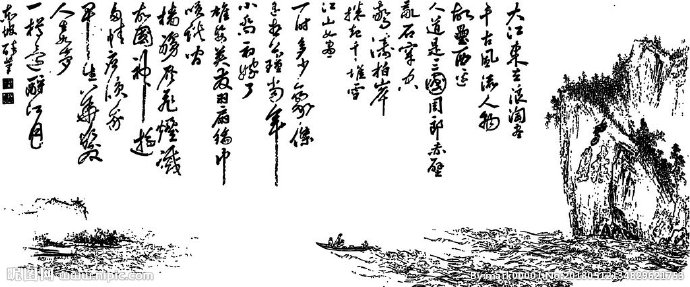 大江東去浪淘盡
千古風流人物
故壘西邊
人道是三國周郎赤壁
亂石穿空
驚濤拍岸
捲起千堆雪
江山如畫
一時多少豪傑
遙想公瑾當年
小喬初嫁了
雄姿英發羽扇綸巾
談笑間
檣櫓灰飛煙滅
故國神遊
多情應笑我
早生華髮
人生如夢
一樽還酹江月
昵图网 www.nipic.com